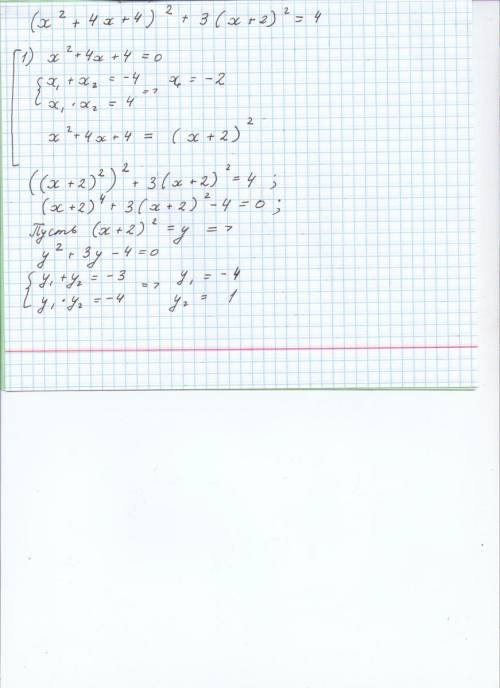 (x² + 4x + 4)² + 3(x+2)² = 4
1) x² + 4x + 4 = 0
{ x₁ + x₂ = -4
x₁ · x₂ = 4 => x = -2
x² + 4x + 4 = (x+2)²
((x+2)²)² + 3(x+2)² = 4 ;
(x+2)⁴ + 3(x+2)² - 4 = 0 ;
Пусть (x+2)² = y =>
y² + 3y - 4 = 0
{ y₁ + y₂ = -3 => y₁ = -4
y₁ · y₂ = -4 y₂ = 1